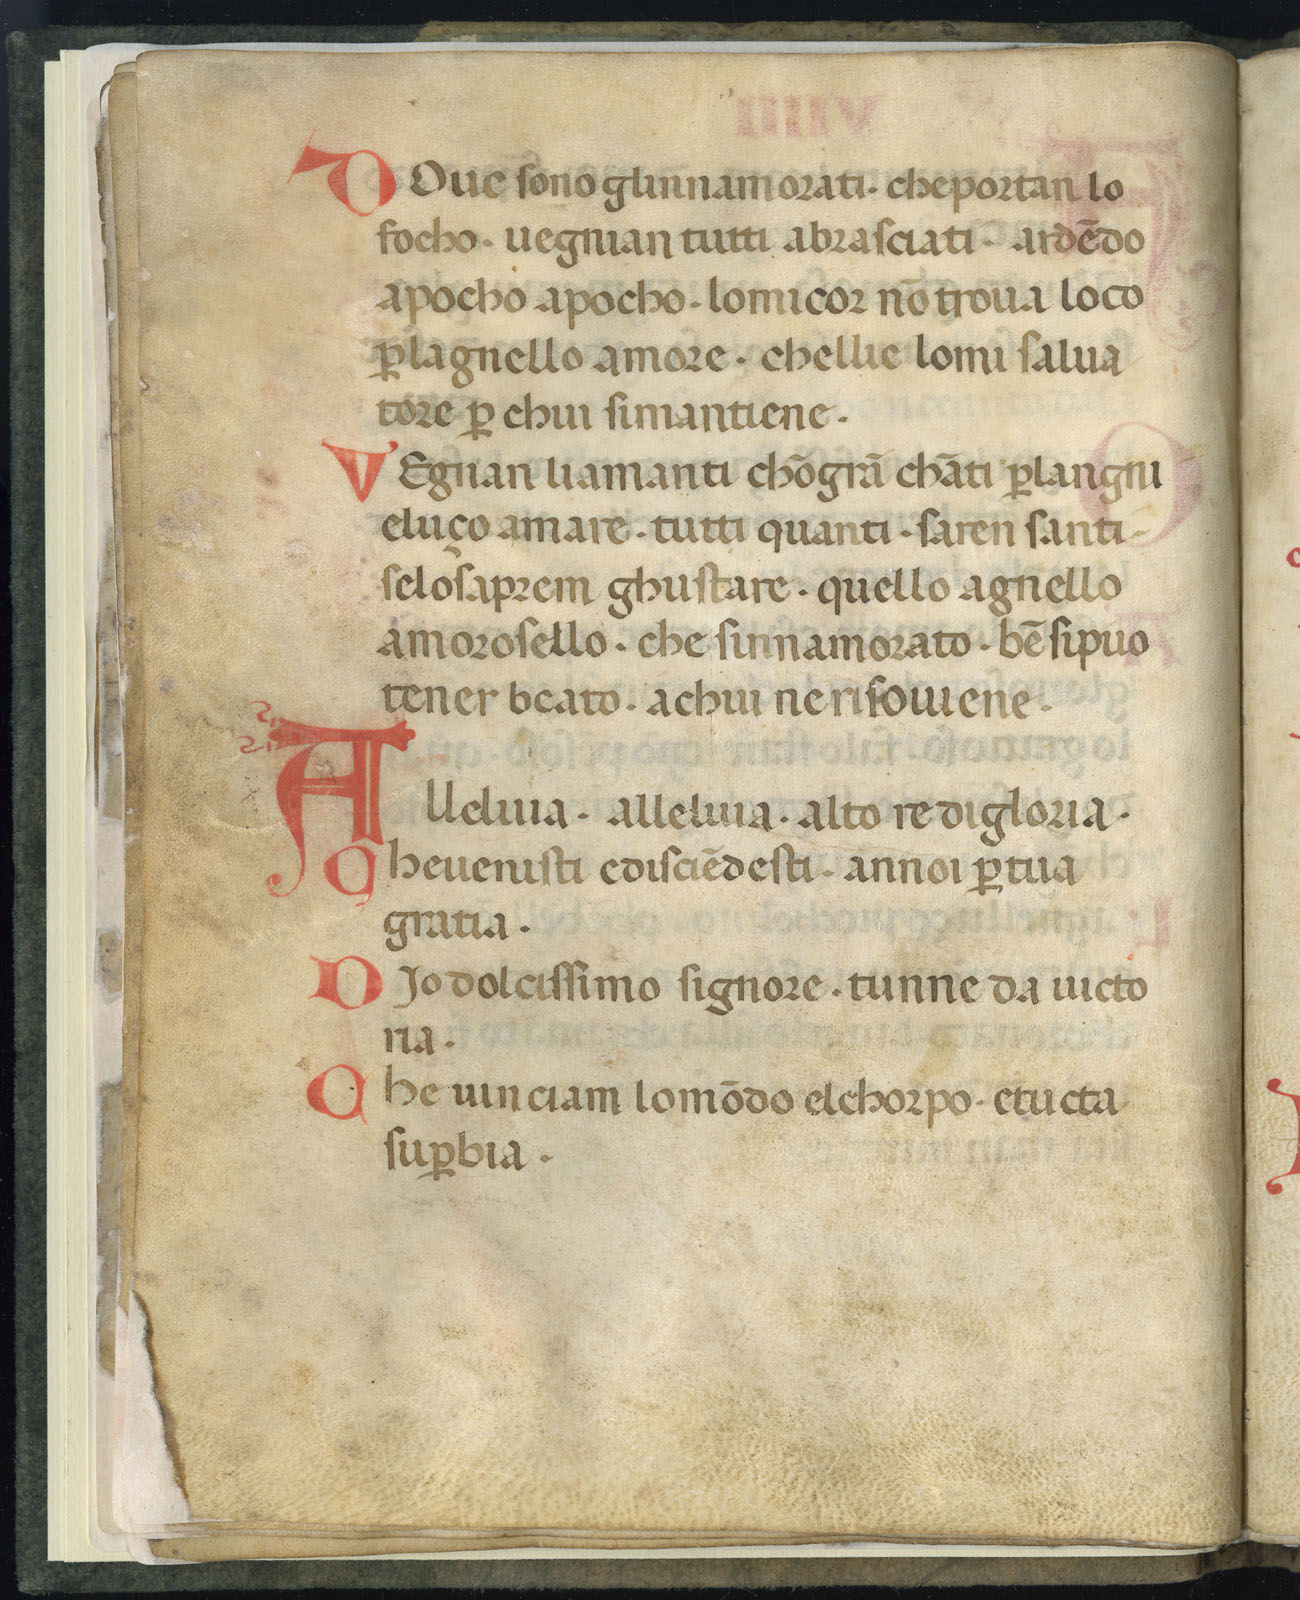 DOue sono glinnamorati· cheportan lo
focho· uegnian tutti abrasciati· ardēdo
apocho apocho· lomicor nō troua loco
ꝑlagnello amore· chellie lomi salua
tore ꝑ chui simantiene·
VEgnan liamanti chōgrā chāti ꝑlangni
eluço amare· tutti quanti· saren santi·
selosaprem ghustare· quello agnello
amorosello· che sinnamorato· bē sipuo
tener beato· achui ne risouiene·
Alleluia· alleluia· alto re digloria·
Cheuenisti ediscēdesti· annoi ꝑ tua
gratia·
DJo dolcissimo signore· tunne da uicto
ria·
Che uinciam lo mōdo elchorpo· etucta
suꝑbia·